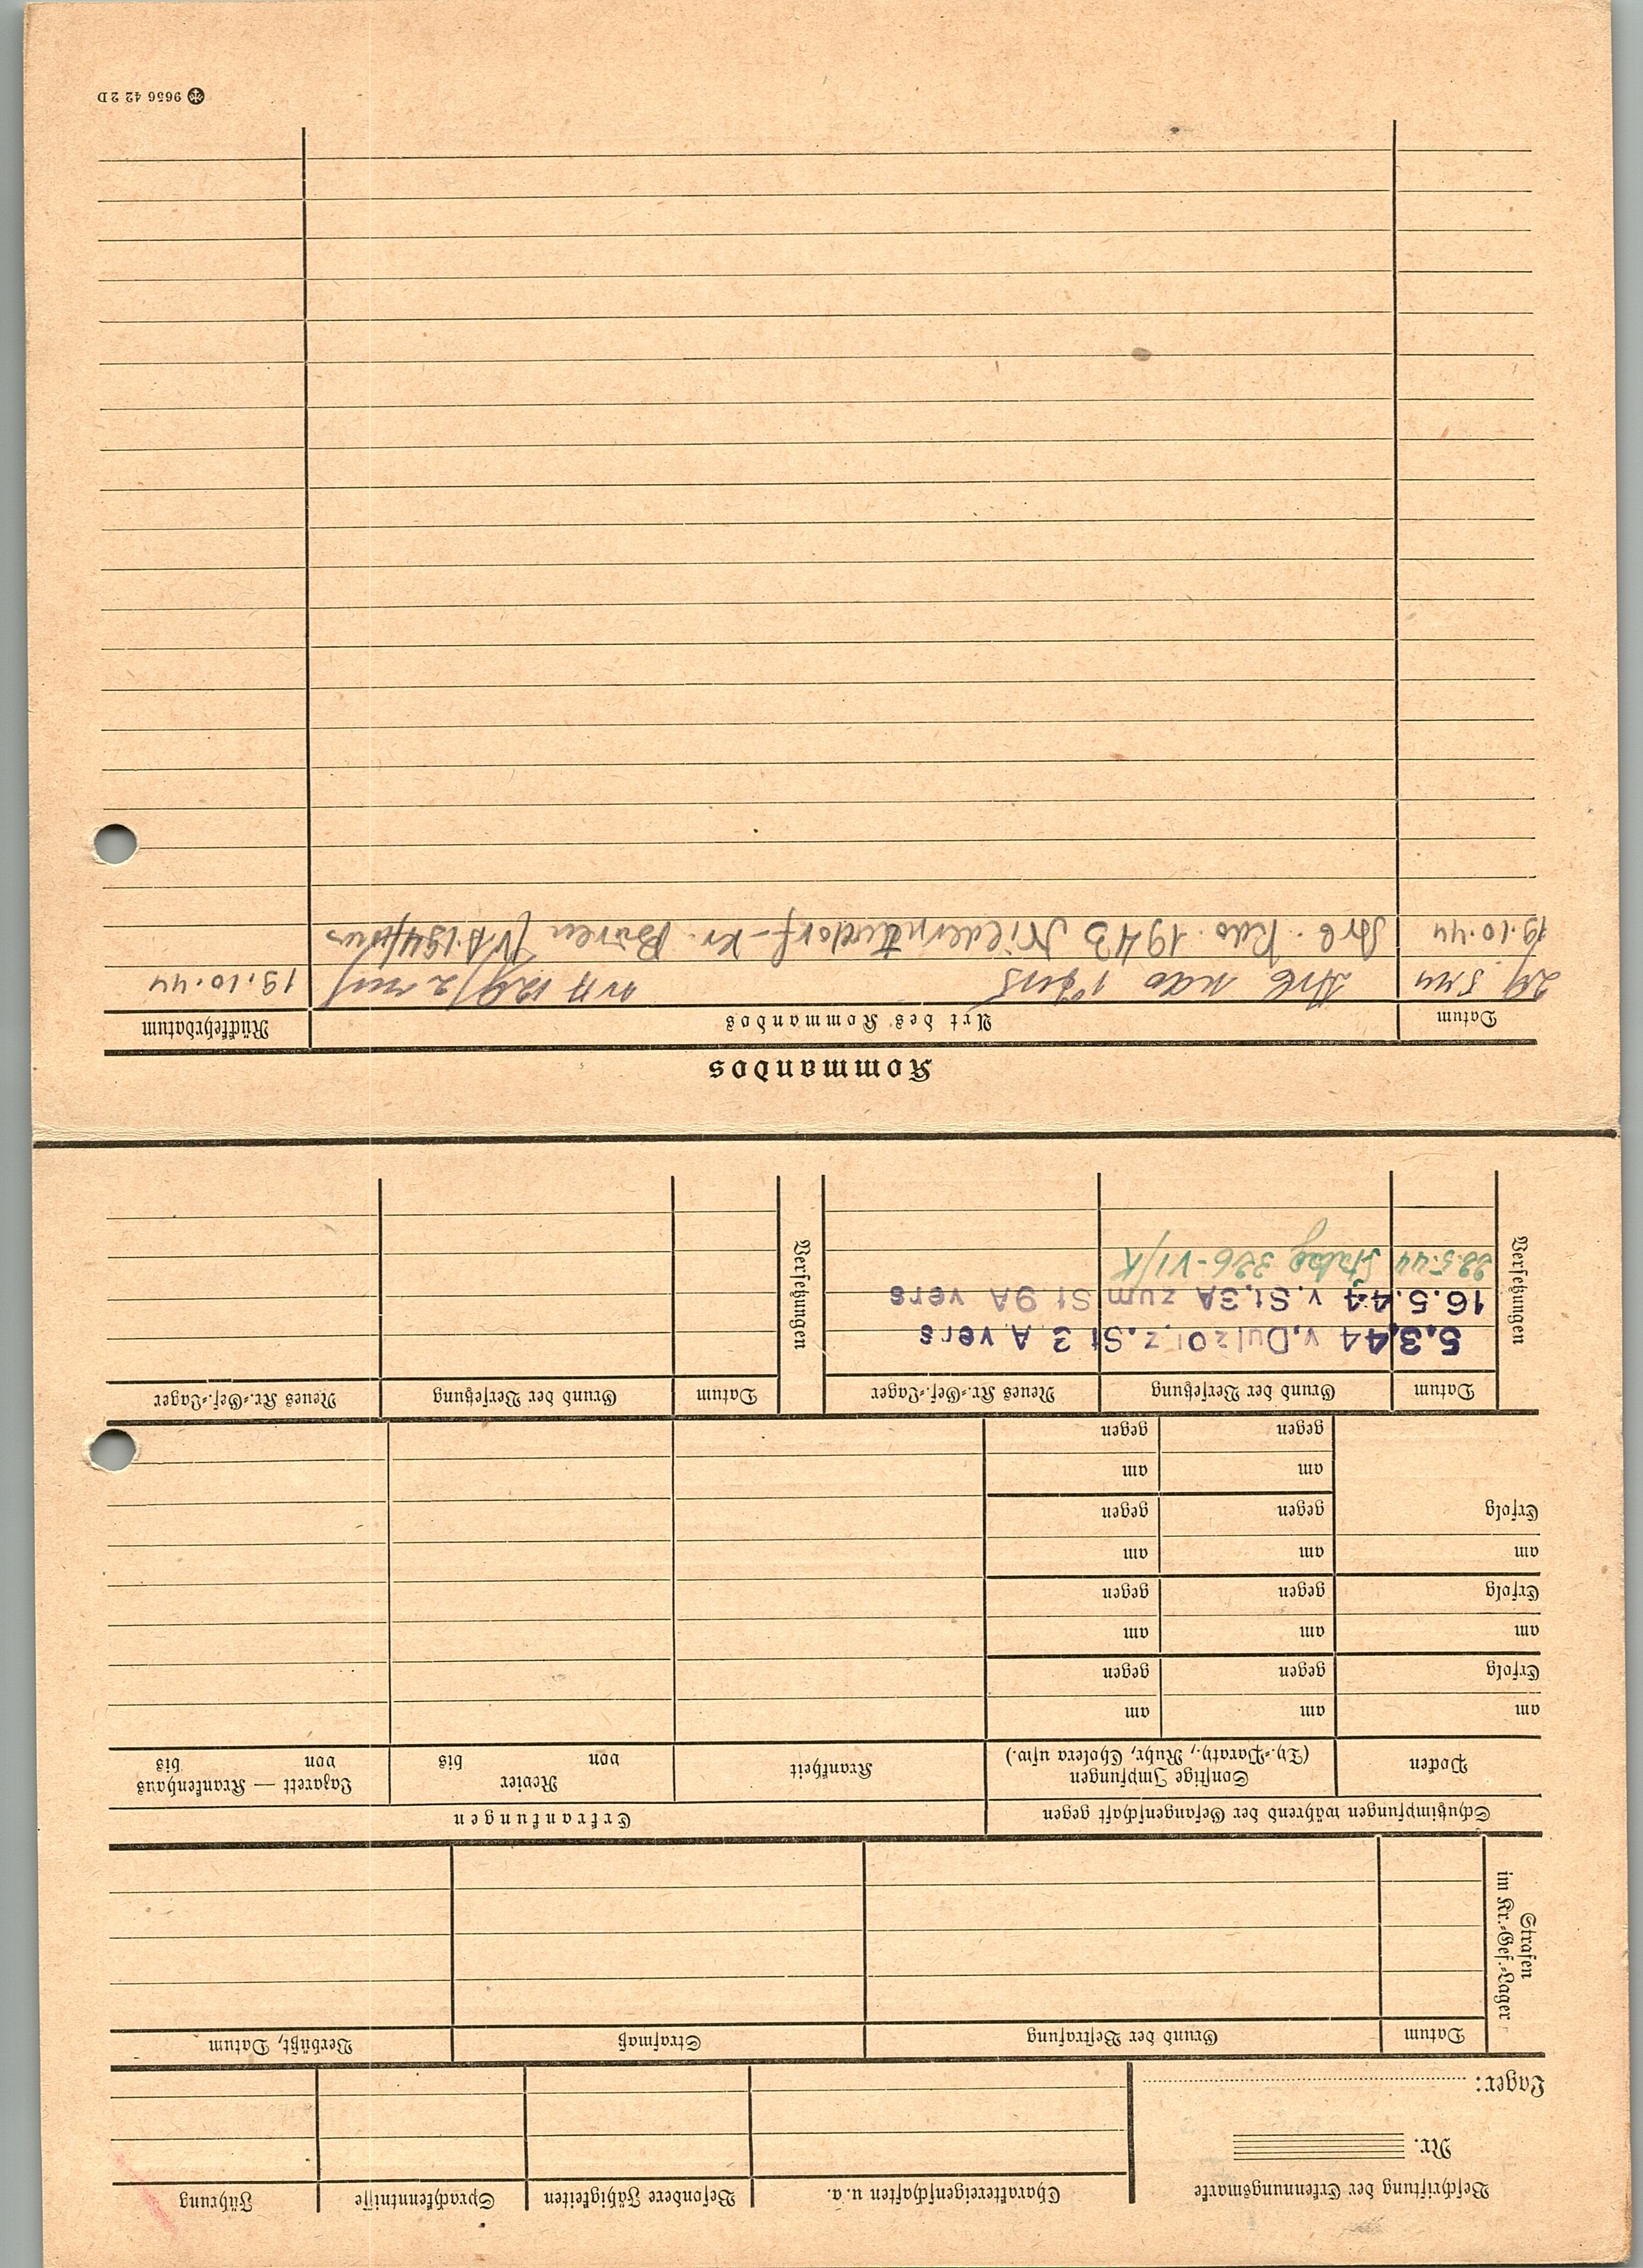 Beschriftung der Erkennungsmarke
Nr.
Lager:
Charaktereigenschaften u. a.
Besondere Fähigkeiten
Sprachkenntnisse
Führung
Strafen
im Kr.-Gef.-Lager
Datum
Grund der Bestrafung
Strafmaß
Verbüßt, Datum
Schutzimpfungen während der Gefangenschaft gegen
Erkrankungen
Pocken
Sonstige Impfungen
(Ty.-Paraty., Ruhr, Cholera usw.)
Krankheit
Revier
von bis
Lazarett — Krankenhaus
von bis
am am am
Erfolg gegen gegen
am am am
Erfolg gegen gegen
am am am
Erfolg gegen gegen
am am
gegen gegen
Versetzungen
Datum
Grund der Versetzung
Neues Kr.-Gef.-Lager
Versetzungen
Datum
Grund der Versetzung
Neues Kr.-Gef.-Lager
5.3.44 v. Dul 201 z. St 3 A vers
16.5.44 v. St. 3A zum St 9A vers
23.5.44 Stalag 326-VI/K
Kommandos
Datum
Art des Kommandos
Rückkehrdatum
29 5 44 Arb Kdo 19.10.44
19.10.44 Arb. Kdo. 1943 Niederntudorf-Kr. Büren
9656 42 2 D